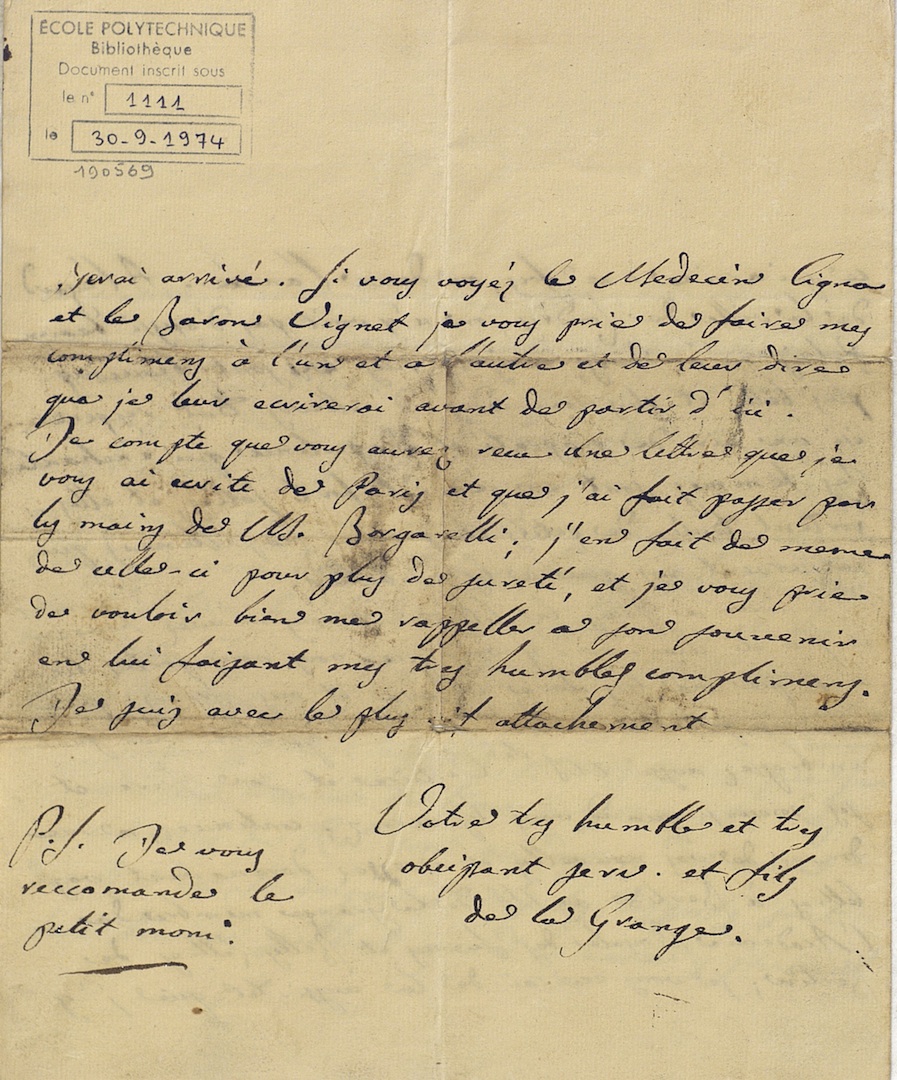 ÉCOLE POLYTECHNIQUE
Bibliothèque
Document inscrit sous
le n° 1111
le 30-9-1974
190569
serai arrivé. Si vous voyéz le Medecin Cigna
et le Baron Vignet je vous prie de faire mes
complimens à l'un et a l'autre et de leur dire
que je leur ecrirerai avant de partir d'ici.
Je compte que vous aurez recu une lettre que je
vous ai ecrite de Paris et que j'ai fait passer par
les mains de M. Borgarelli; j'en fait de meme
de celle-ci pour plus de sureté, et je vous prie
de vouloir bien me rappeller a son souvenir
en lui faisant mes tres humbles complimens.
Je suis avec le plus attachement
Votre tres humble et tres
obeissant serv. et fils
de la Grange.
P.S. Je vous
reccomande le
petit momi.